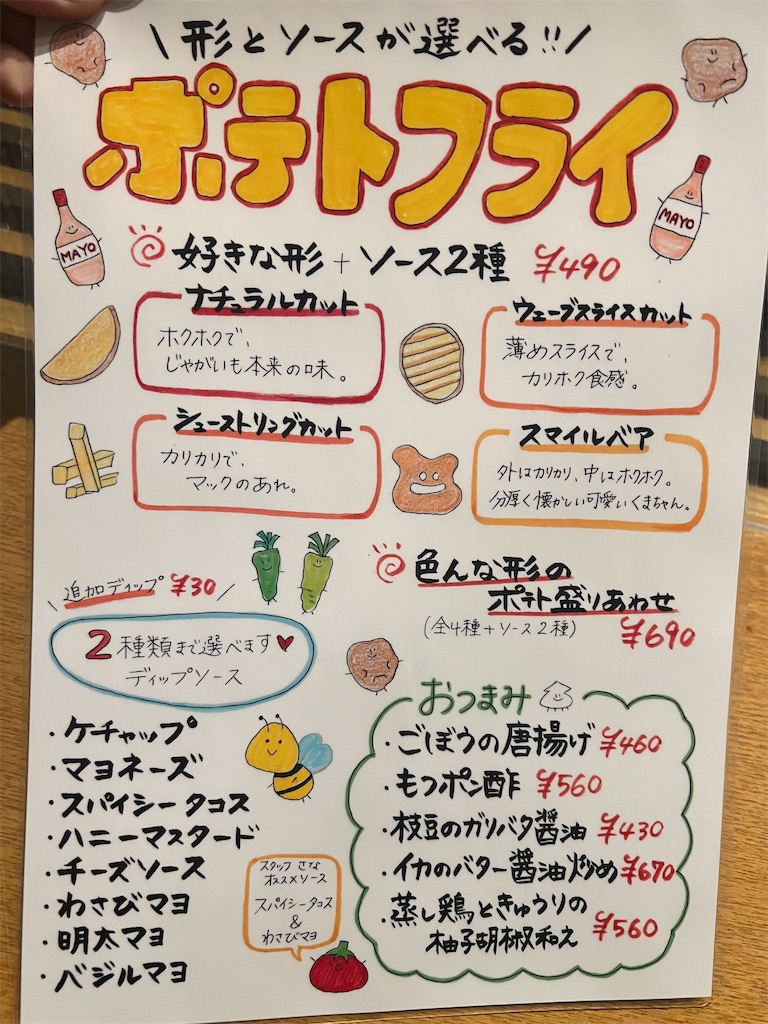 \ 形とソースが選べる!! /
ポテトフライ
MAYO
MAYO
好きな形 + ソース2種 ¥490
ナチュラルカット
ホクホクで、
じゃがいも本来の味。
ウェーブスライスカット
薄めスライスで、
カリホク食感。
シューストリングカット
カリカリで、
マックのあれ。
スマイルベア
外はカリカリ、中はホクホク。
分厚く懐かしい可愛いくまちゃん。
\ 追加ディップ ¥30 /
2種類まで選べます♥
ディップソース
・ケチャップ
・マヨネーズ
・スパイシータコス
・ハニーマスタード
・チーズソース
・わさびマヨ
・明太マヨ
・バジルマヨ
スタッフさな
オススメソース
スパイシータコス
&
わさびマヨ
色んな形の
ポテト盛りあわせ
(全4種+ソース2種)
¥690
おつまみ
・ごぼうの唐揚げ ¥460
・もつポン酢 ¥560
・枝豆のガリバタ醤油 ¥430
・イカのバター醤油炒め ¥670
・蒸し鶏ときゅうりの
柚子胡椒和え ¥560